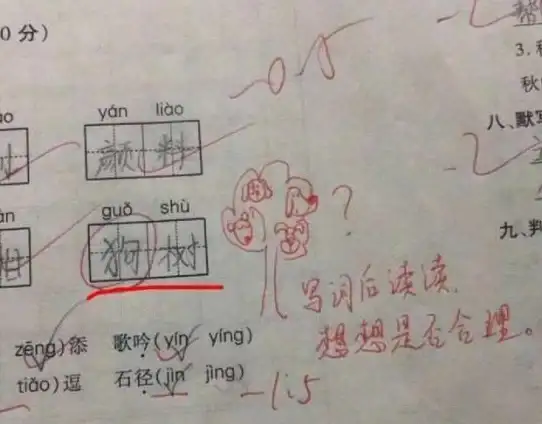 0分)
yán liào
颜料
guǒ shù
狗树
-0.5
?
写词后读读,
想想是否合理。
zēng)添 歌吟(yín yíng)
tiāo)逗 石径(jìn jìng)
-1.5
3.
秋
八、默写
九、判